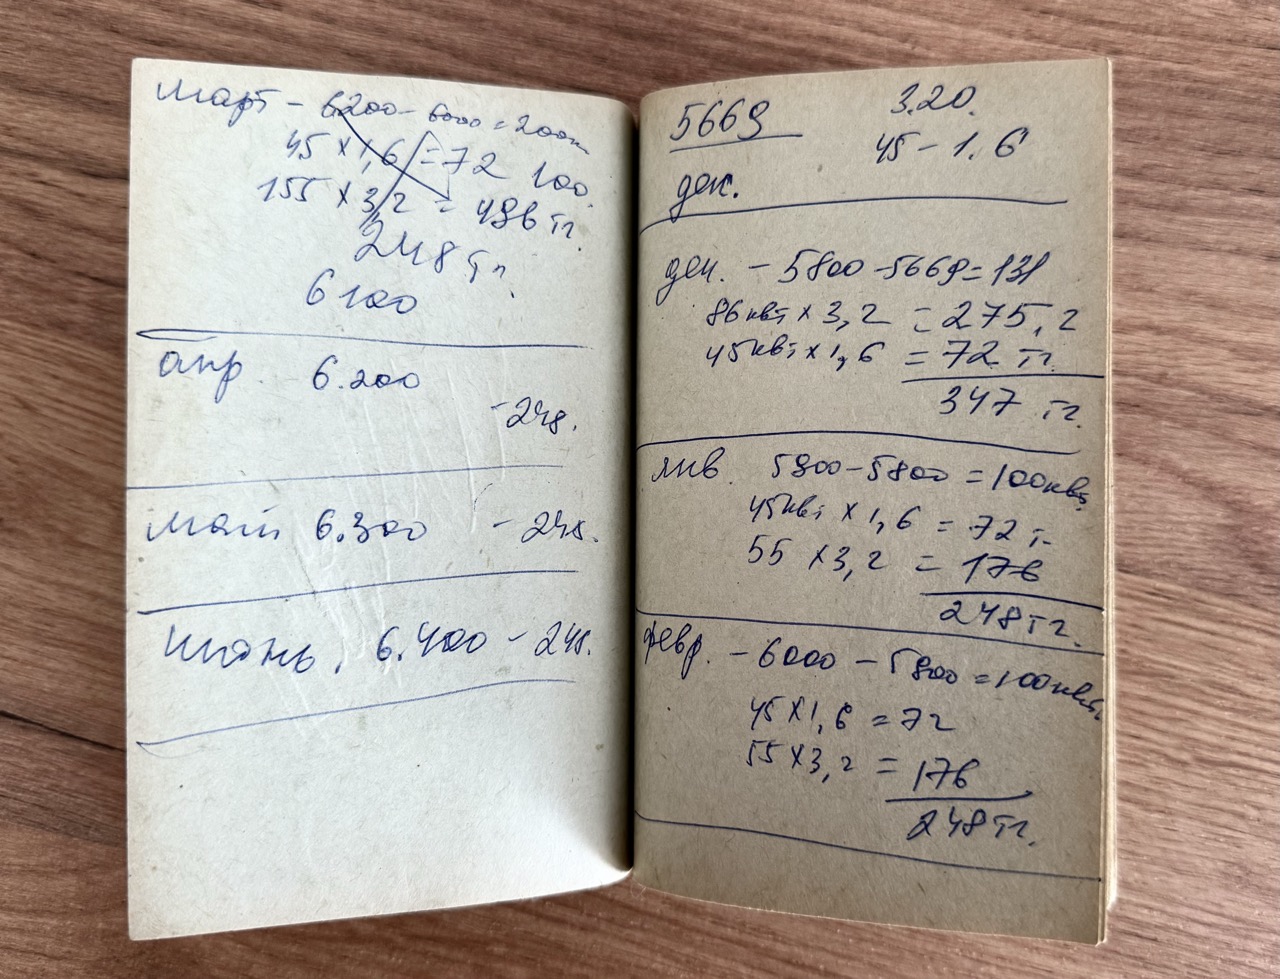 март - 6200 - 6000 = 200к
45 х 1,6 = 72 100.
155 х 3,2 = 496 тг.
248 тг.
6100
апр 6.200
- 248.
май 6.300 - 248.
июнь, 6.400 - 248.
5669 3.20.
45 - 1.6
дек.
дек. - 5800 - 5669 = 131
86 квт х 3,2 = 275,2
45 квт х 1,6 = 72 тг.
347 тг.
янв 5900 - 5800 = 100 квт
45 квт х 1,6 = 72 т
55 х 3,2 = 176
248 тг.
февр. - 6000 - 5900 = 100 квт.
45 х 1,6 = 72
55 х 3,2 = 176
248 тг.